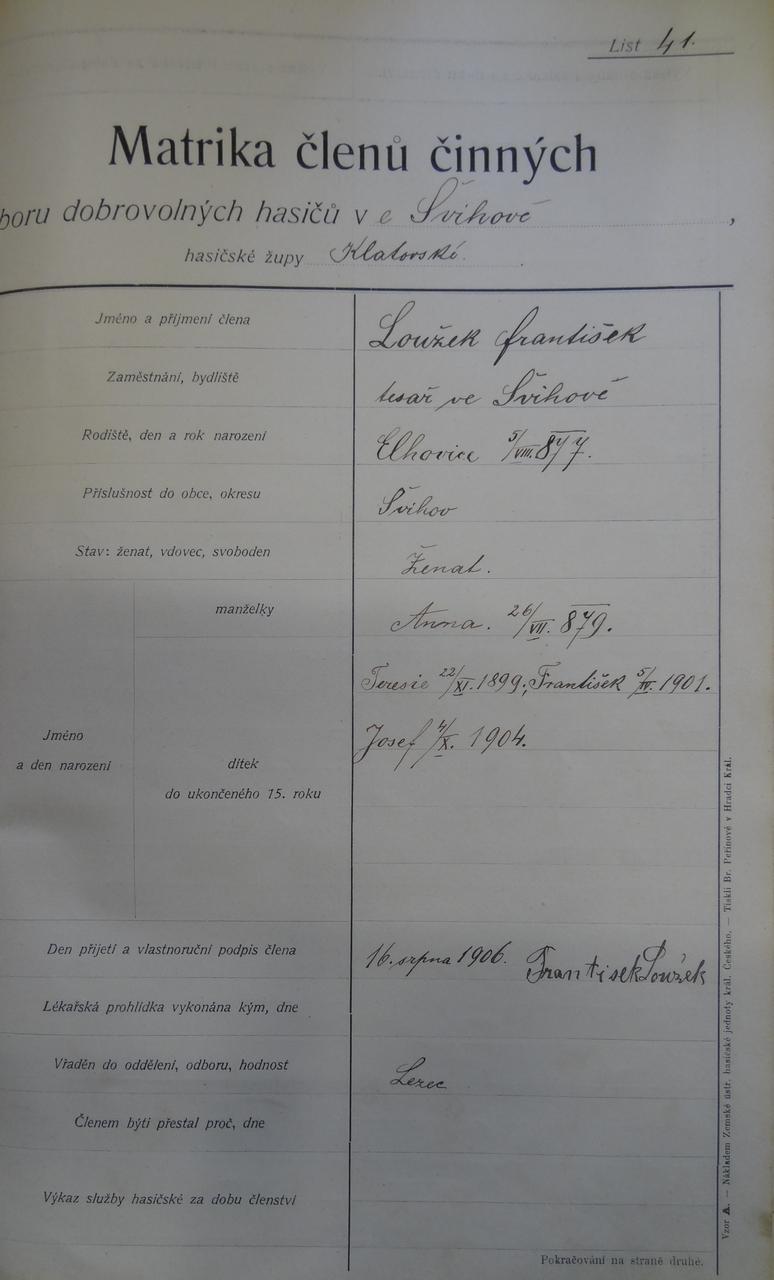 List 41.
Matrika členů činných
boru dobrovolných hasičů v e Švihově,
hasičské župy Klatovské.
Jméno a příjmení člena Loužek František
Zaměstnání, bydliště tesař ve Švihově
Rodiště, den a rok narození Elhovice 5/VIII. 877.
Příslušnost do obce, okresu Švihov
Stav: ženat, vdovec, svoboden Ženat.
manželky Anna. 26/VII. 879.
Teresie 22/XI. 1899; František 5/IV. 1901.
Jméno Josef 4/X. 1904.
a den narození dítek
do ukončeného 15. roku
Den přijetí a vlastnoruční podpis člena 16. srpna 1906. František Loužek
Lékařská prohlídka vykonána kým, dne
Vřaděn do oddělení, odboru, hodnost Lezec
Členem býti přestal proč, dne
Výkaz služby hasičské za dobu členství
Pokračování na straně druhé.
Vzor A. — Nákladem Zemské ústř. hasičské jednoty král. Českého. — Tiskli Br. Peřinové v Hradci Král.